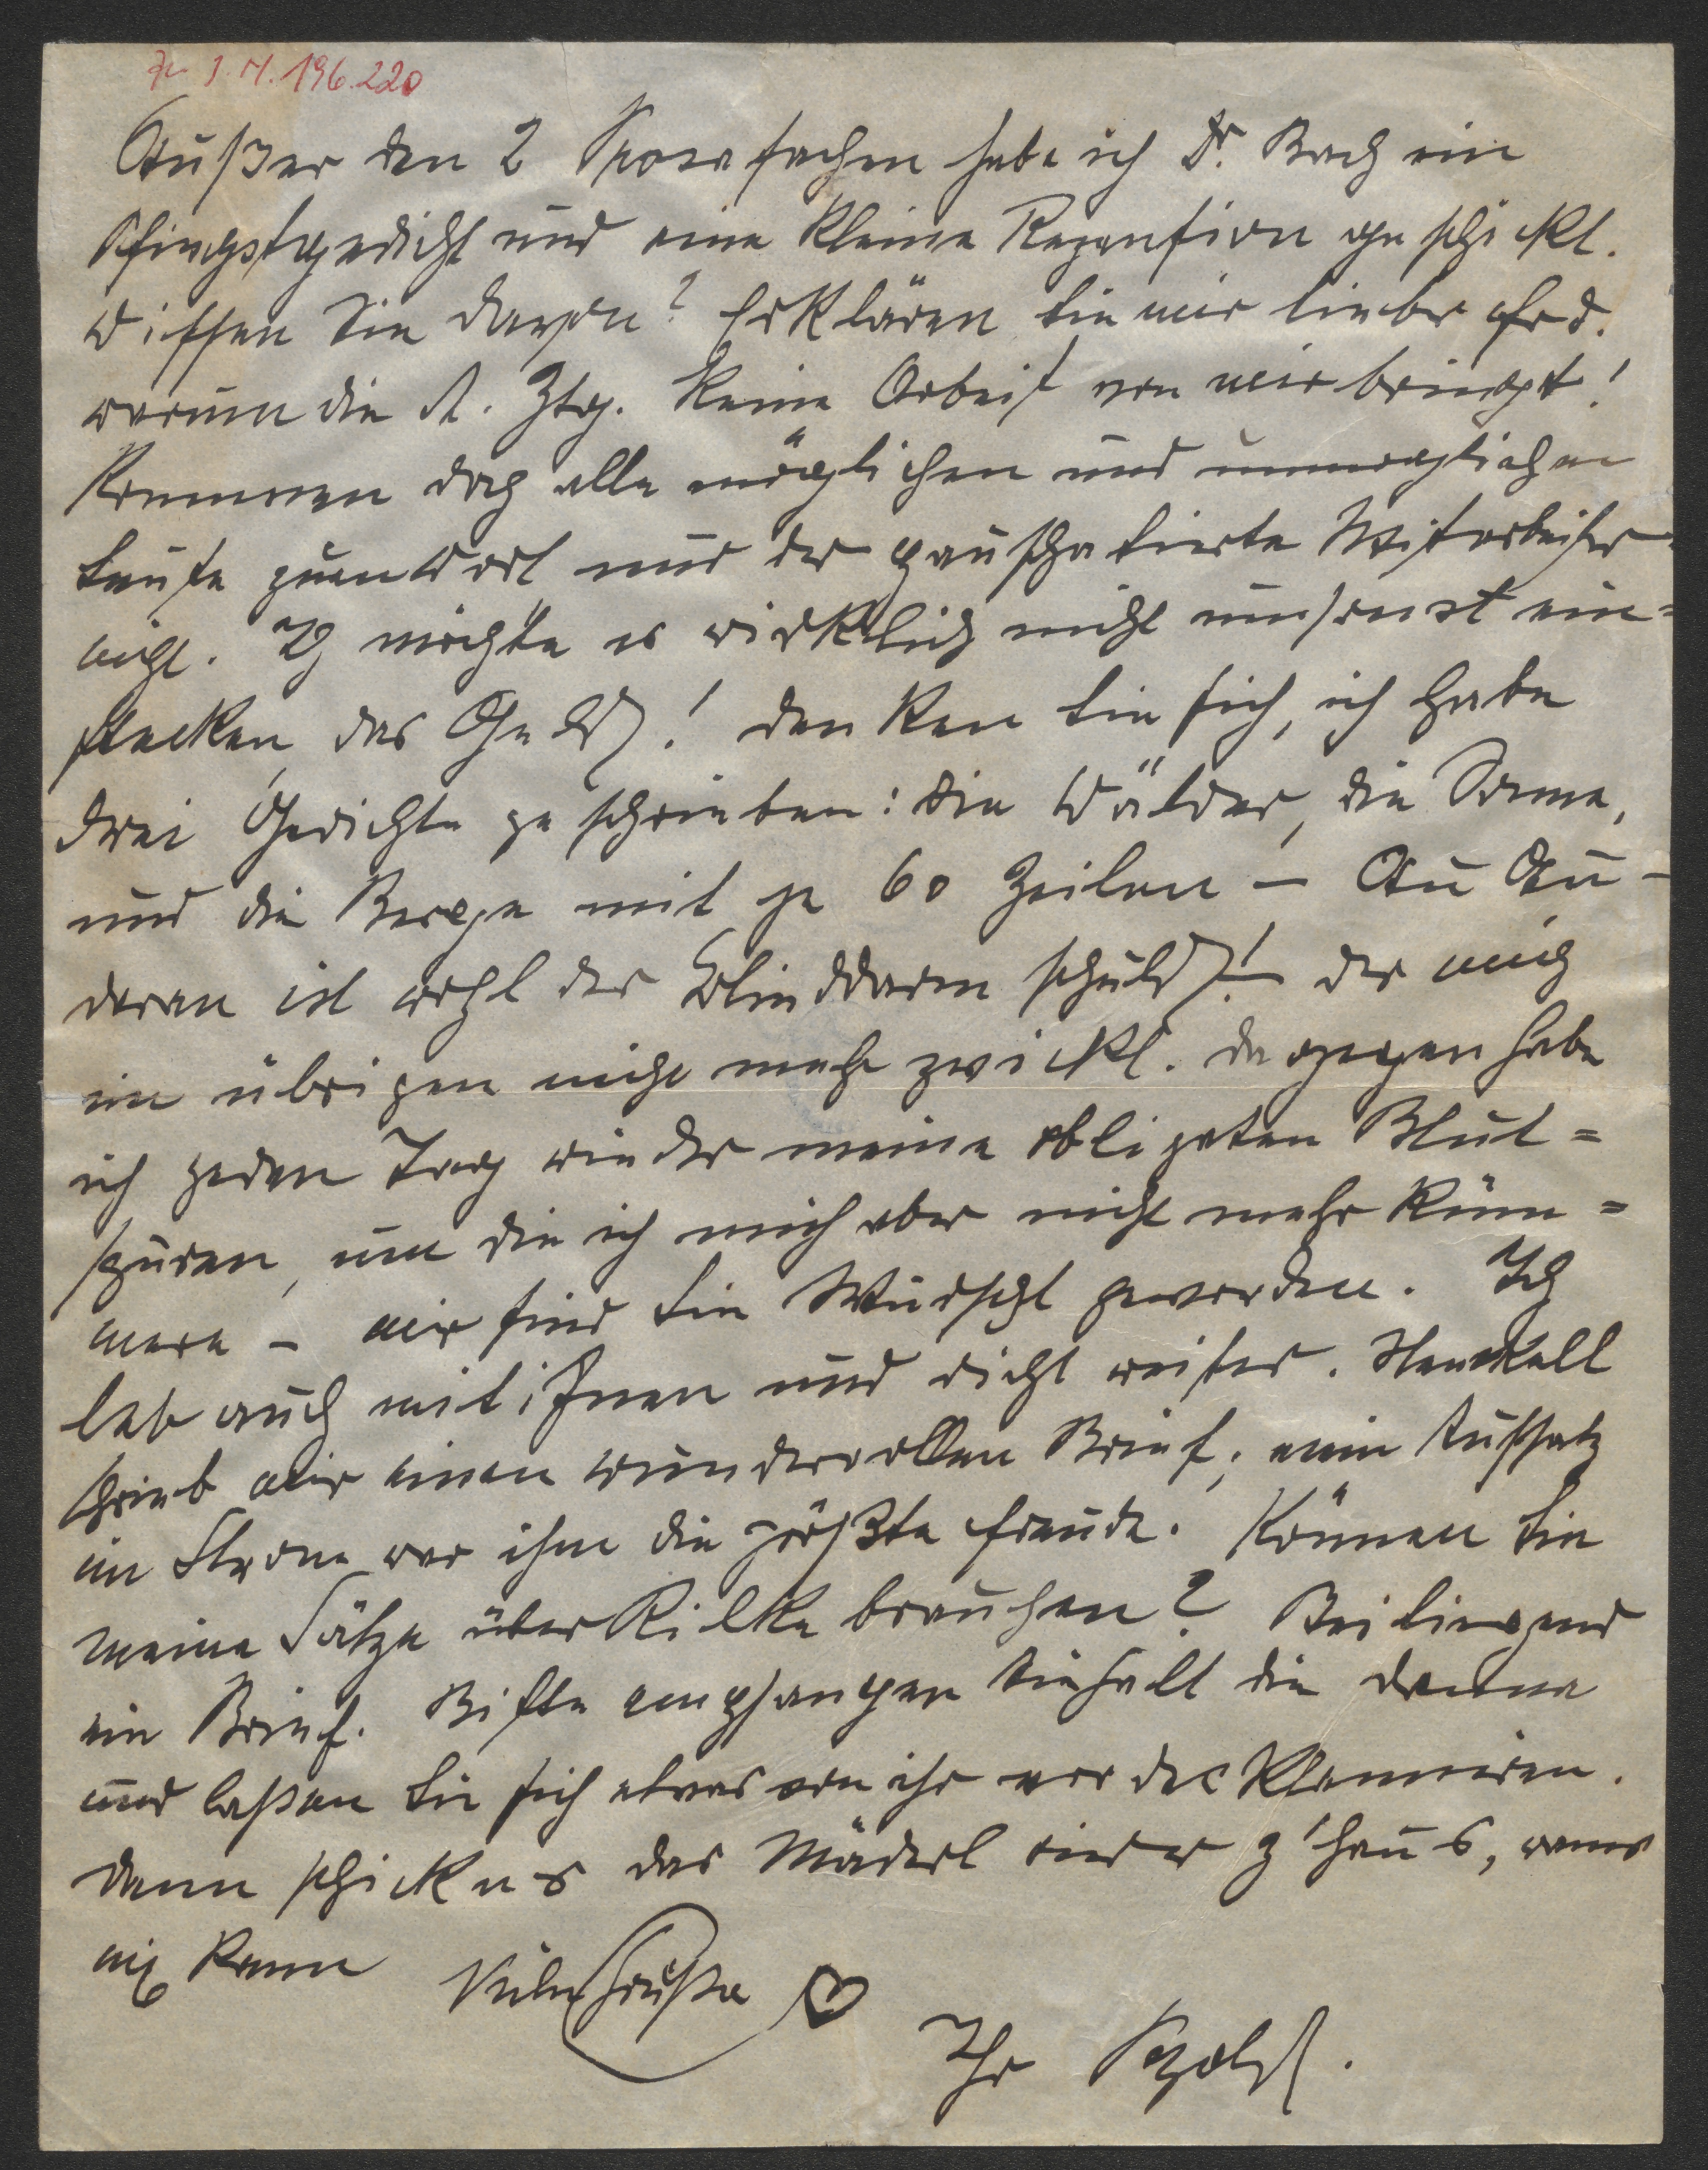 Zu I. N. 196.220
Außer den 2 Prosasachen habe ich Dr. Bach ein
Pfingstgedicht und eine kleine Rezension geschickt.
Wissen Sie davon? Erklären Sie mir lieber Frd.
warum die A. Ztg. keine Arbeit von mir bringt!
Kommen doch alle möglichen und unmöglichen
Leute zum Wort nur der pauschalierte Mitarbeiter
nicht. Ich möchte es wirklich nicht umsonst ein=
stecken, das Geld! Denken Sie sich, ich habe
drei Gedichte geschrieben: Die Wälder, die Sonne,
und die Berge mit je 60 Zeilen – Au Au –
daran ist wohl der Blinddarm schuld! – der mich
im übrigen nicht mehr zwickt. Dagegen habe
ich jeden Tag wieder meine obligaten Blut=
spuren, um die ich mich aber nicht mehr küm=
mere – mir sind sie Wurscht geworden. Ich
leb auch mit ihnen und dicht weiter. Henckell
schrieb mir einen wundervollen Brief; mein Aufsatz
im Strom war ihm die größte Freude. Können Sie
meine Sätze über Rilke brauchen? Beiliegend
ein Brief. Bitte empfangen Sie halt die Damme
und laßen Sie sich etwas von ihr vordeklamiren.
Dann schickn's das Mäderl wieder z'haus, wanns
nix kann Viele Grüße
Ihr Petzold.